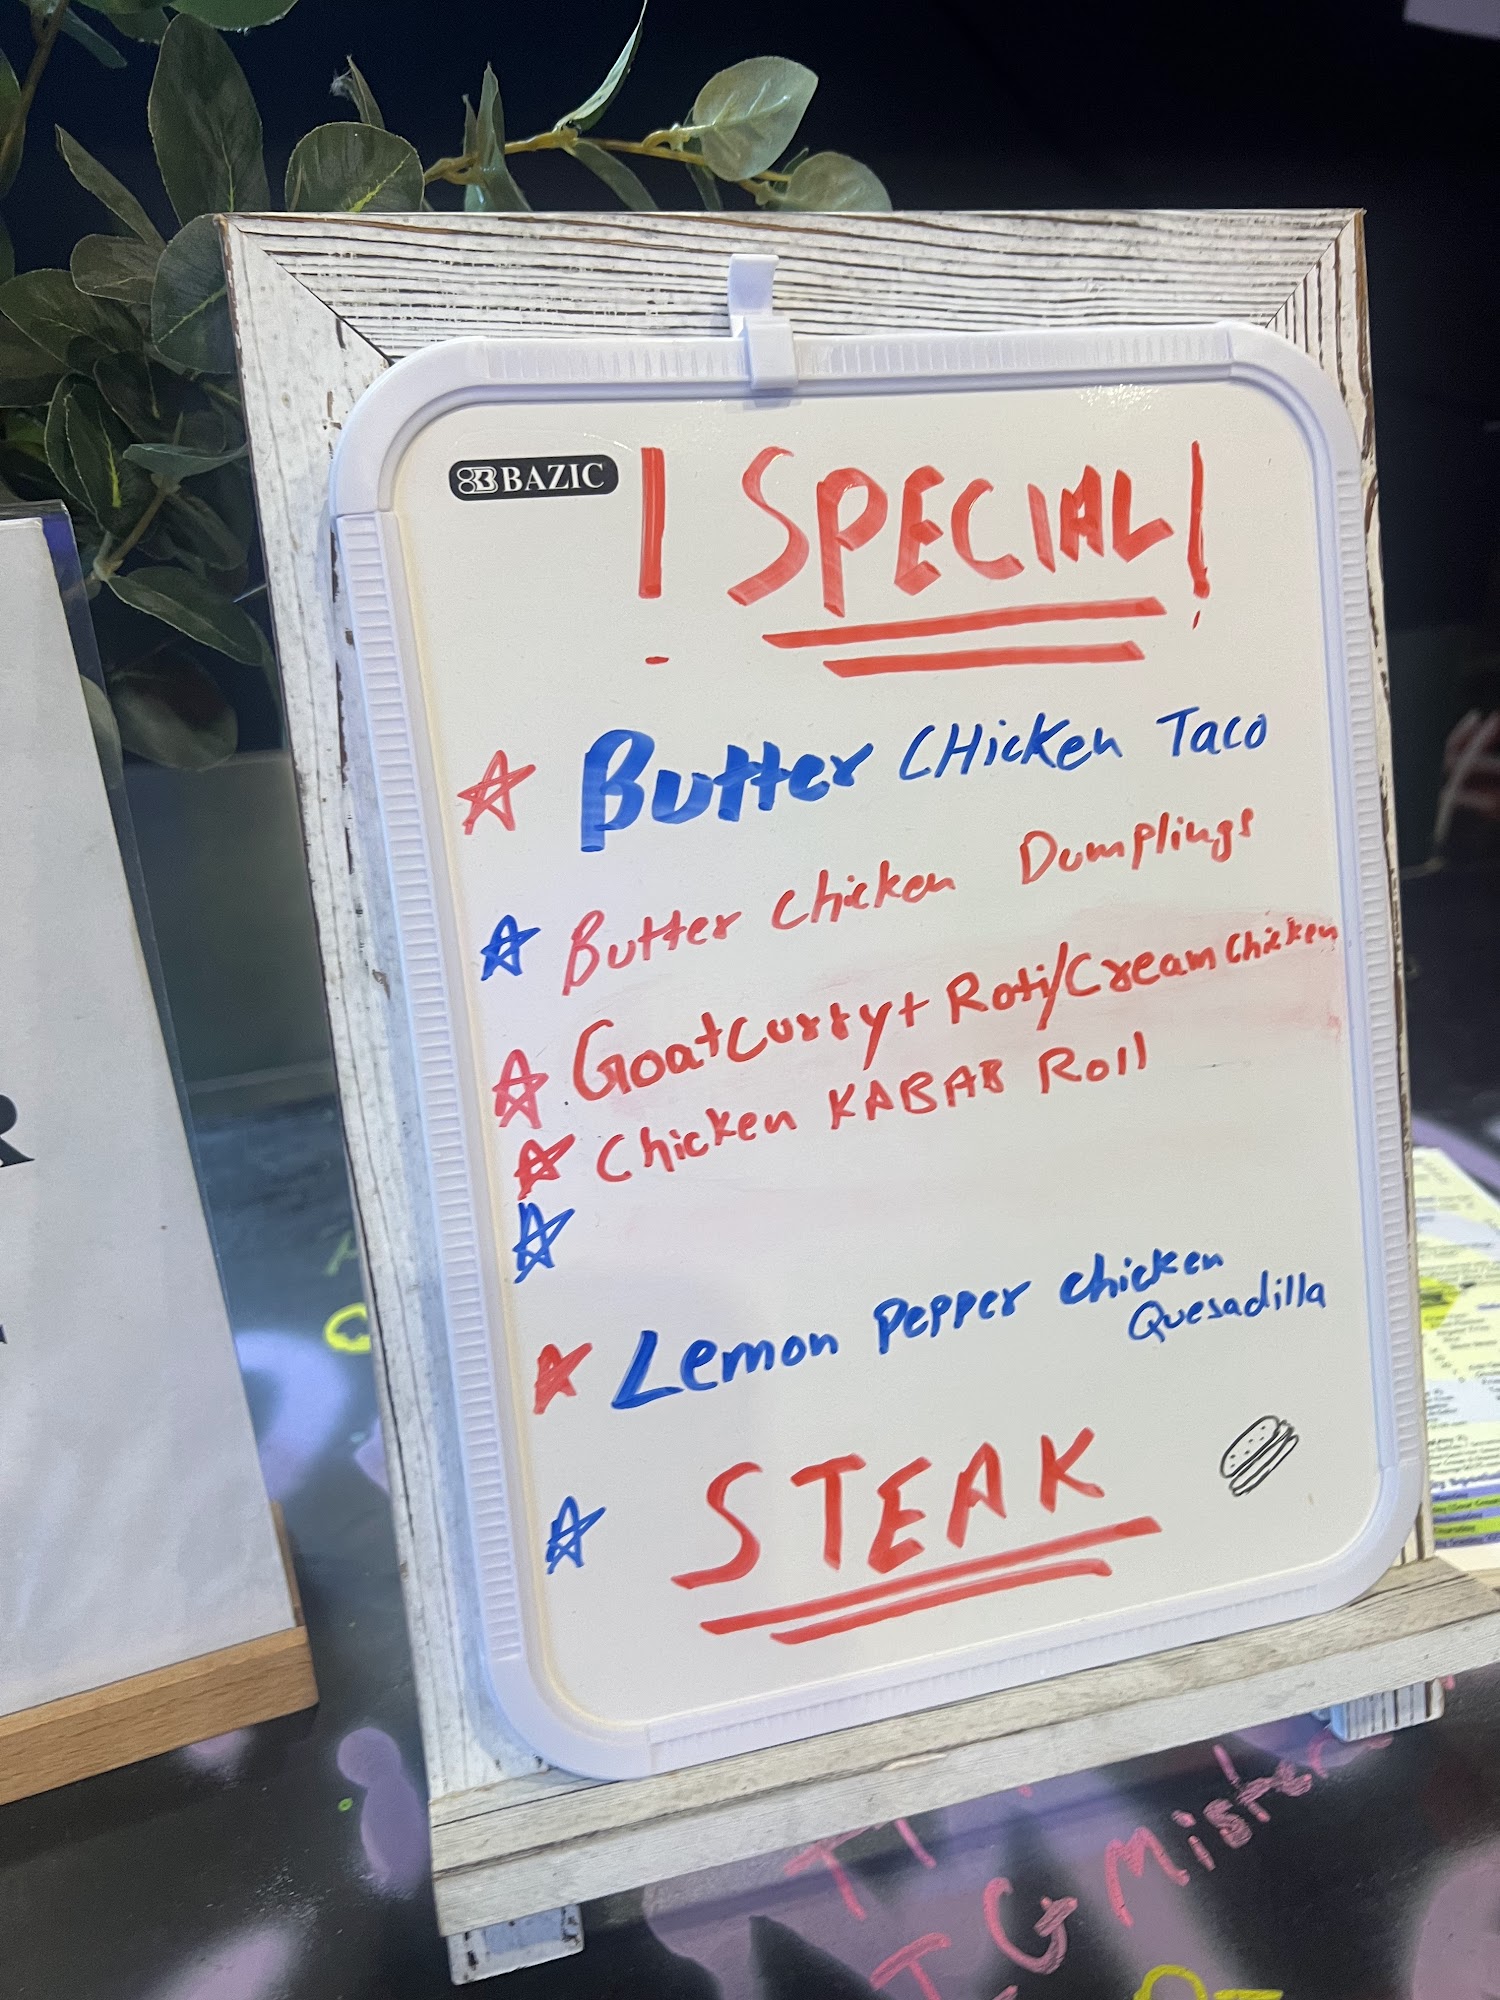 BAZIC
! SPECIAL!
Butter CHicken Taco
Butter chicken Dumplings
Goat curry + Roti/Cream chicken
Chicken KABAB Roll
Lemon Pepper chicken
Quesadilla
STEAK
R
IG Mister